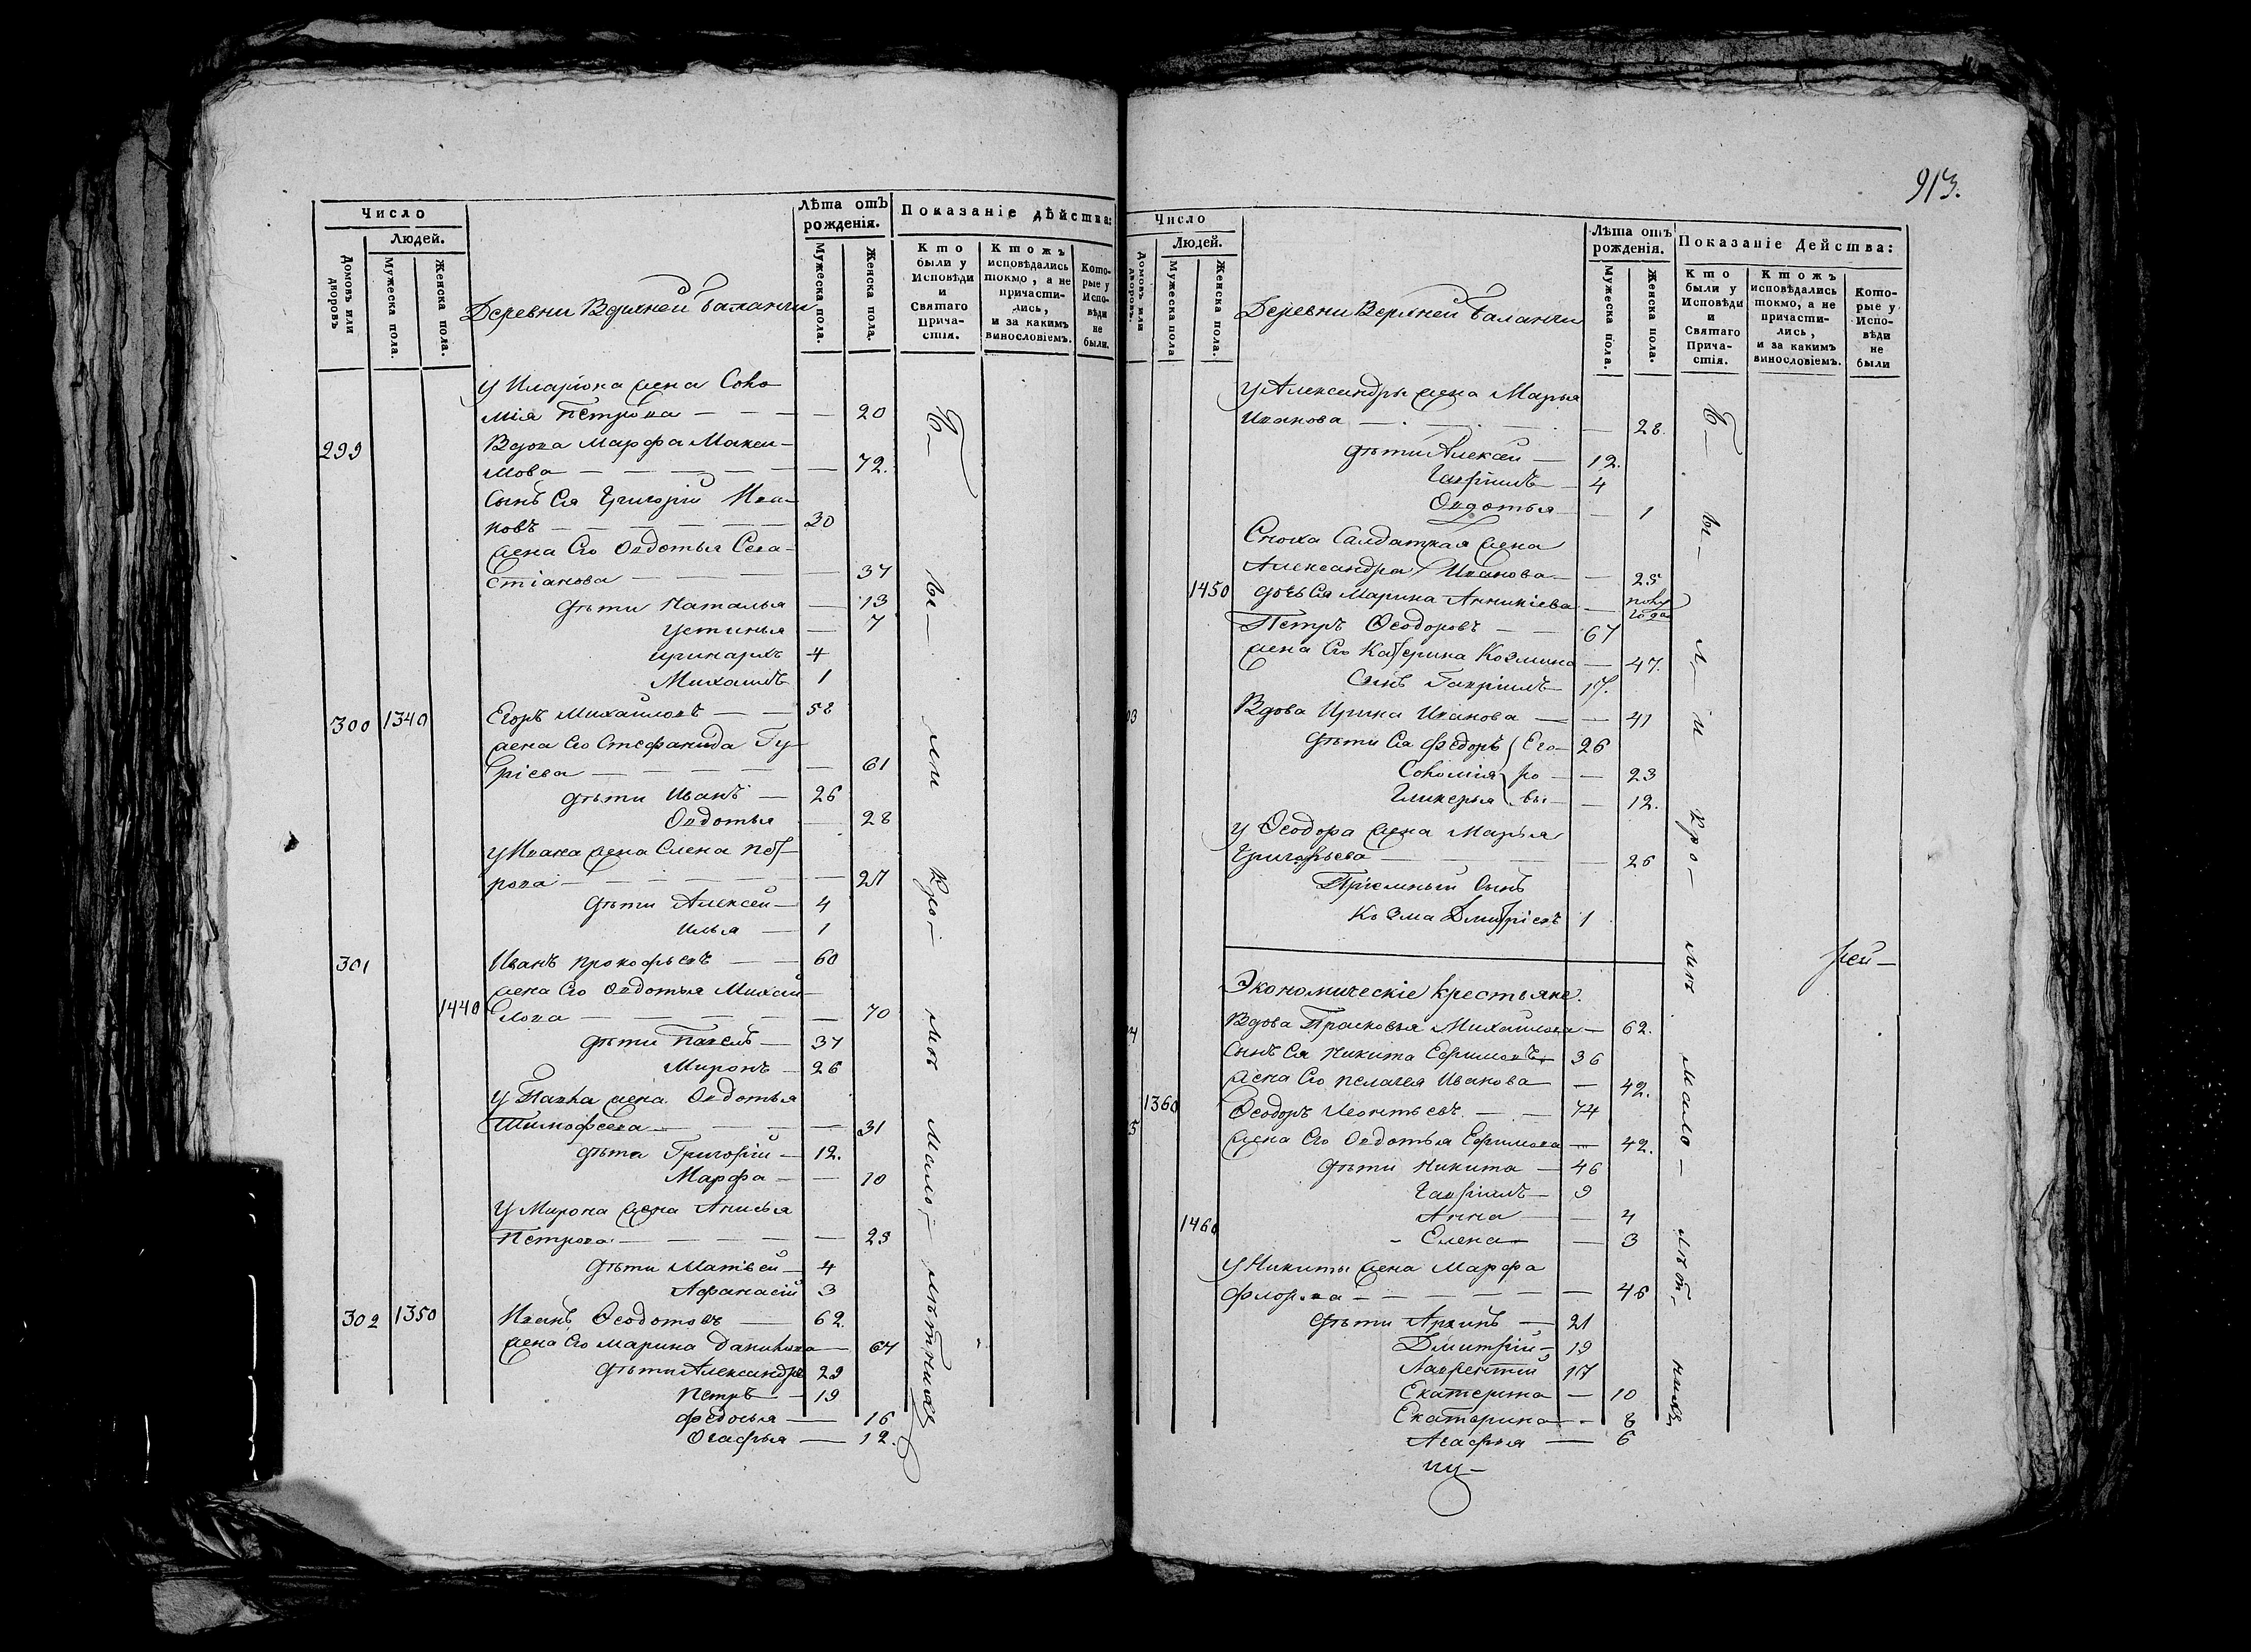 913.
Число
Людей.
Домовъ или дворовъ
Мужеска пола.
Женска пола.
Деревни Верхней Баланчи
Лѣта отъ рожденія.
Мужеска пола.
Женска пола.
Показаніе дѣйства:
Кто были у Исповѣди и Святаго Причастія.
Ктожъ исповѣдались токмо, а не причастились, и за какимъ винословіемъ.
Которые у Исповѣди не были.
у Иларіона жена Соло
мія Петрова — — — 20
299 Вдова Марфа Макси-
мова — — — 72.
Сынъ Ея Григорій Ива-
новъ — — — 30
жена Его Овдотья Сева-
стіанова — — — 37
дѣти Наталья — 13
Устинья — 7
Иринархъ 4
Михаилъ 1
300 1340 Егоръ Михайловъ — — 58
жена Его Стефанида Гу-
ріева — — — 61
дѣти Иванъ — 26
Овдотья — 28
у Ивана жена Елена Пет-
рова — — — 27
дѣти Алексей — 4
Илья — 1
301 Иванъ Прокофьевъ — — 60
жена Его Овдотья Михай-
1440 лова — — — 70
дѣти Павелъ — 37
Миронъ — 26
у Павла жена Овдотья
Тимофеева — — — 31
дѣти Григорій — 12.
Марфа — — 10
У Мирона жена Анисья
Петрова — — — 23
дѣти Матвей — 4
Афанасій 3
302 1350 Иванъ Ѳеодотовъ — 62.
жена Его Марина Данилова — 64
дѣти Александръ 29
Петръ — 19
Федосья — 16
Огафья — 12.
Бы-
ли
кро-
мѣ
мало-
лѣтнихъ
Число
Людей.
Домовъ или дворовъ.
Мужеска пола
Женска пола.
Деревни Верхней Баланчи
Лѣта отъ рожденія.
Мужеска пола.
Женска пола.
Показаніе Действа:
Кто были у Исповѣди и Святаго Причастія.
Ктожъ исповѣдались токмо, а не причастились, и за какимъ винословіемъ.
Которые у Исповѣди не были
у Александры жена Марья
Иванова — — — 28.
дѣти Алексей — 12.
Гавріилъ — 4
Овдотья — 1
Сноха Салдатская жена
Александра Иванова — — 25
1450 дочь Ея Марина Аникіева — полу года
Петръ Ѳеодоровъ — — 67
жена Его Катерина Козмина — 47.
Сынъ Гавріилъ — 17.
03 Вдова Ирина Иванова — — 41
дѣти Ея Федоръ Его- 26
Соломія ро- — 23
Гликерья вы — — 12.
у Ѳеодора жена Марья
Григорьева — — — 26
Пріемный Сынъ
Козма Дмитріевъ 1
Экономическіе крестьяне.
4 Вдова Прасковья Михайлова — 62.
Сынъ Ея Никита Ефимовъ 36
жена Его Пелагея Иванова — 42.
1360 Ѳеодоръ Леонтьевъ — — 74
5 жена Его Овдотья Ефимова — 42.
дѣти Никита — 46
Гавріилъ — 9
1460 Анна — — 4
Елена — 3
У Никиты жена Марфа
— — — 46
дѣти Архипъ — 21
Дмитрій — 19
Лаврентій 17
Екатерина — 10
Екатерина — 8
Агафья — 6
Бы-
ли
кро-
мѣ
мало-
лѣт-
нихъ
рей-